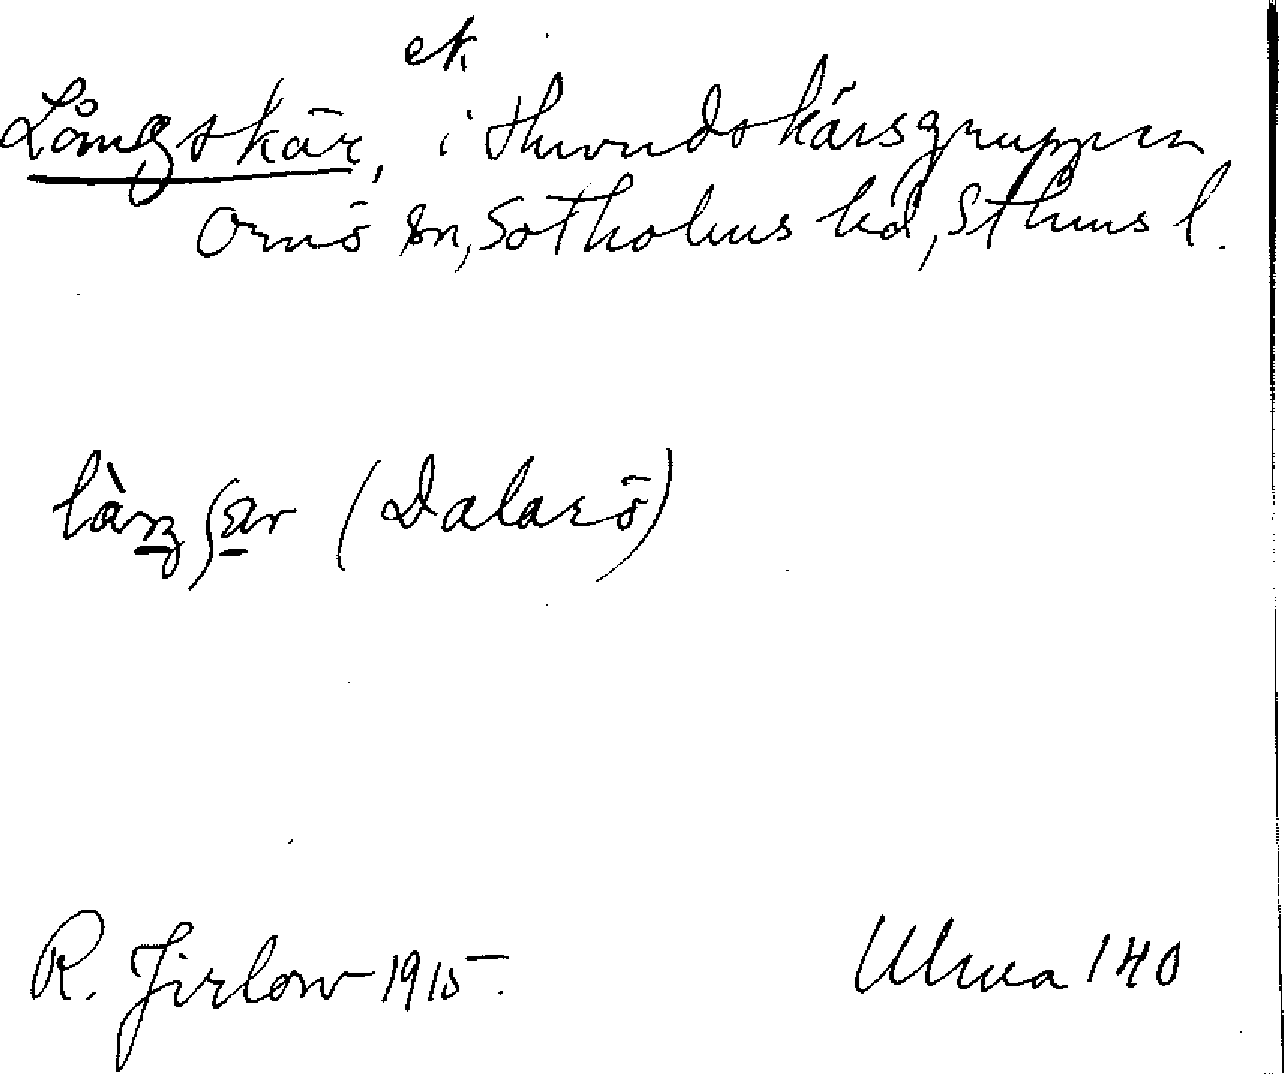 ek
Långskär, i Huvudskärsgruppen
Ornö sn, Sotholms hd, Sthms l.
(Dalarö)
R. Jirlow 1915.
Ulma 140